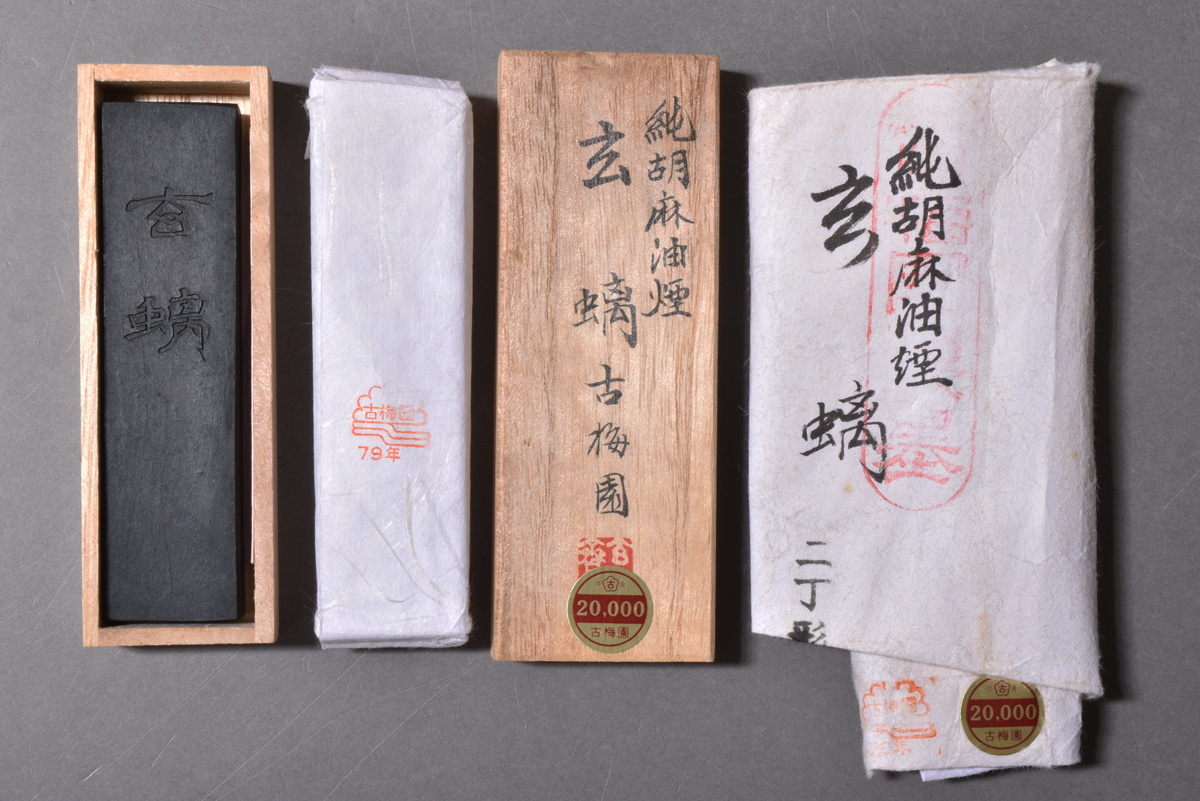 玄
螭
古梅園
79年
純胡麻油煙
玄螭
古梅園
古
20,000
古梅園
純胡麻油煙
玄螭
二丁形
古梅園
古
20,000
古梅園